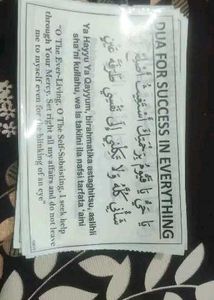 DUA FOR SUCCESS IN EVERYTHING
يَا حَيُّ يَا قَيُّومُ بِرَحْمَتِكَ أَسْتَغِيثُ أَصْلِحْ لِي
شَأْنِي كُلَّهُ وَلَا تَكِلْنِي إِلَى نَفْسِي طَرْفَةَ عَيْنٍ
Ya Hayyu Ya Qayyum, birahmatika astaghitsu, aslihli
sha'ni kullahu, wa la takilni ila nafsi tarfata 'ami
"O The Ever-Living, O The Self-Subsisting, I seek help
through Your Mercy. Set right all my affairs and do not leave
me to myself even for the blinking of an eye"